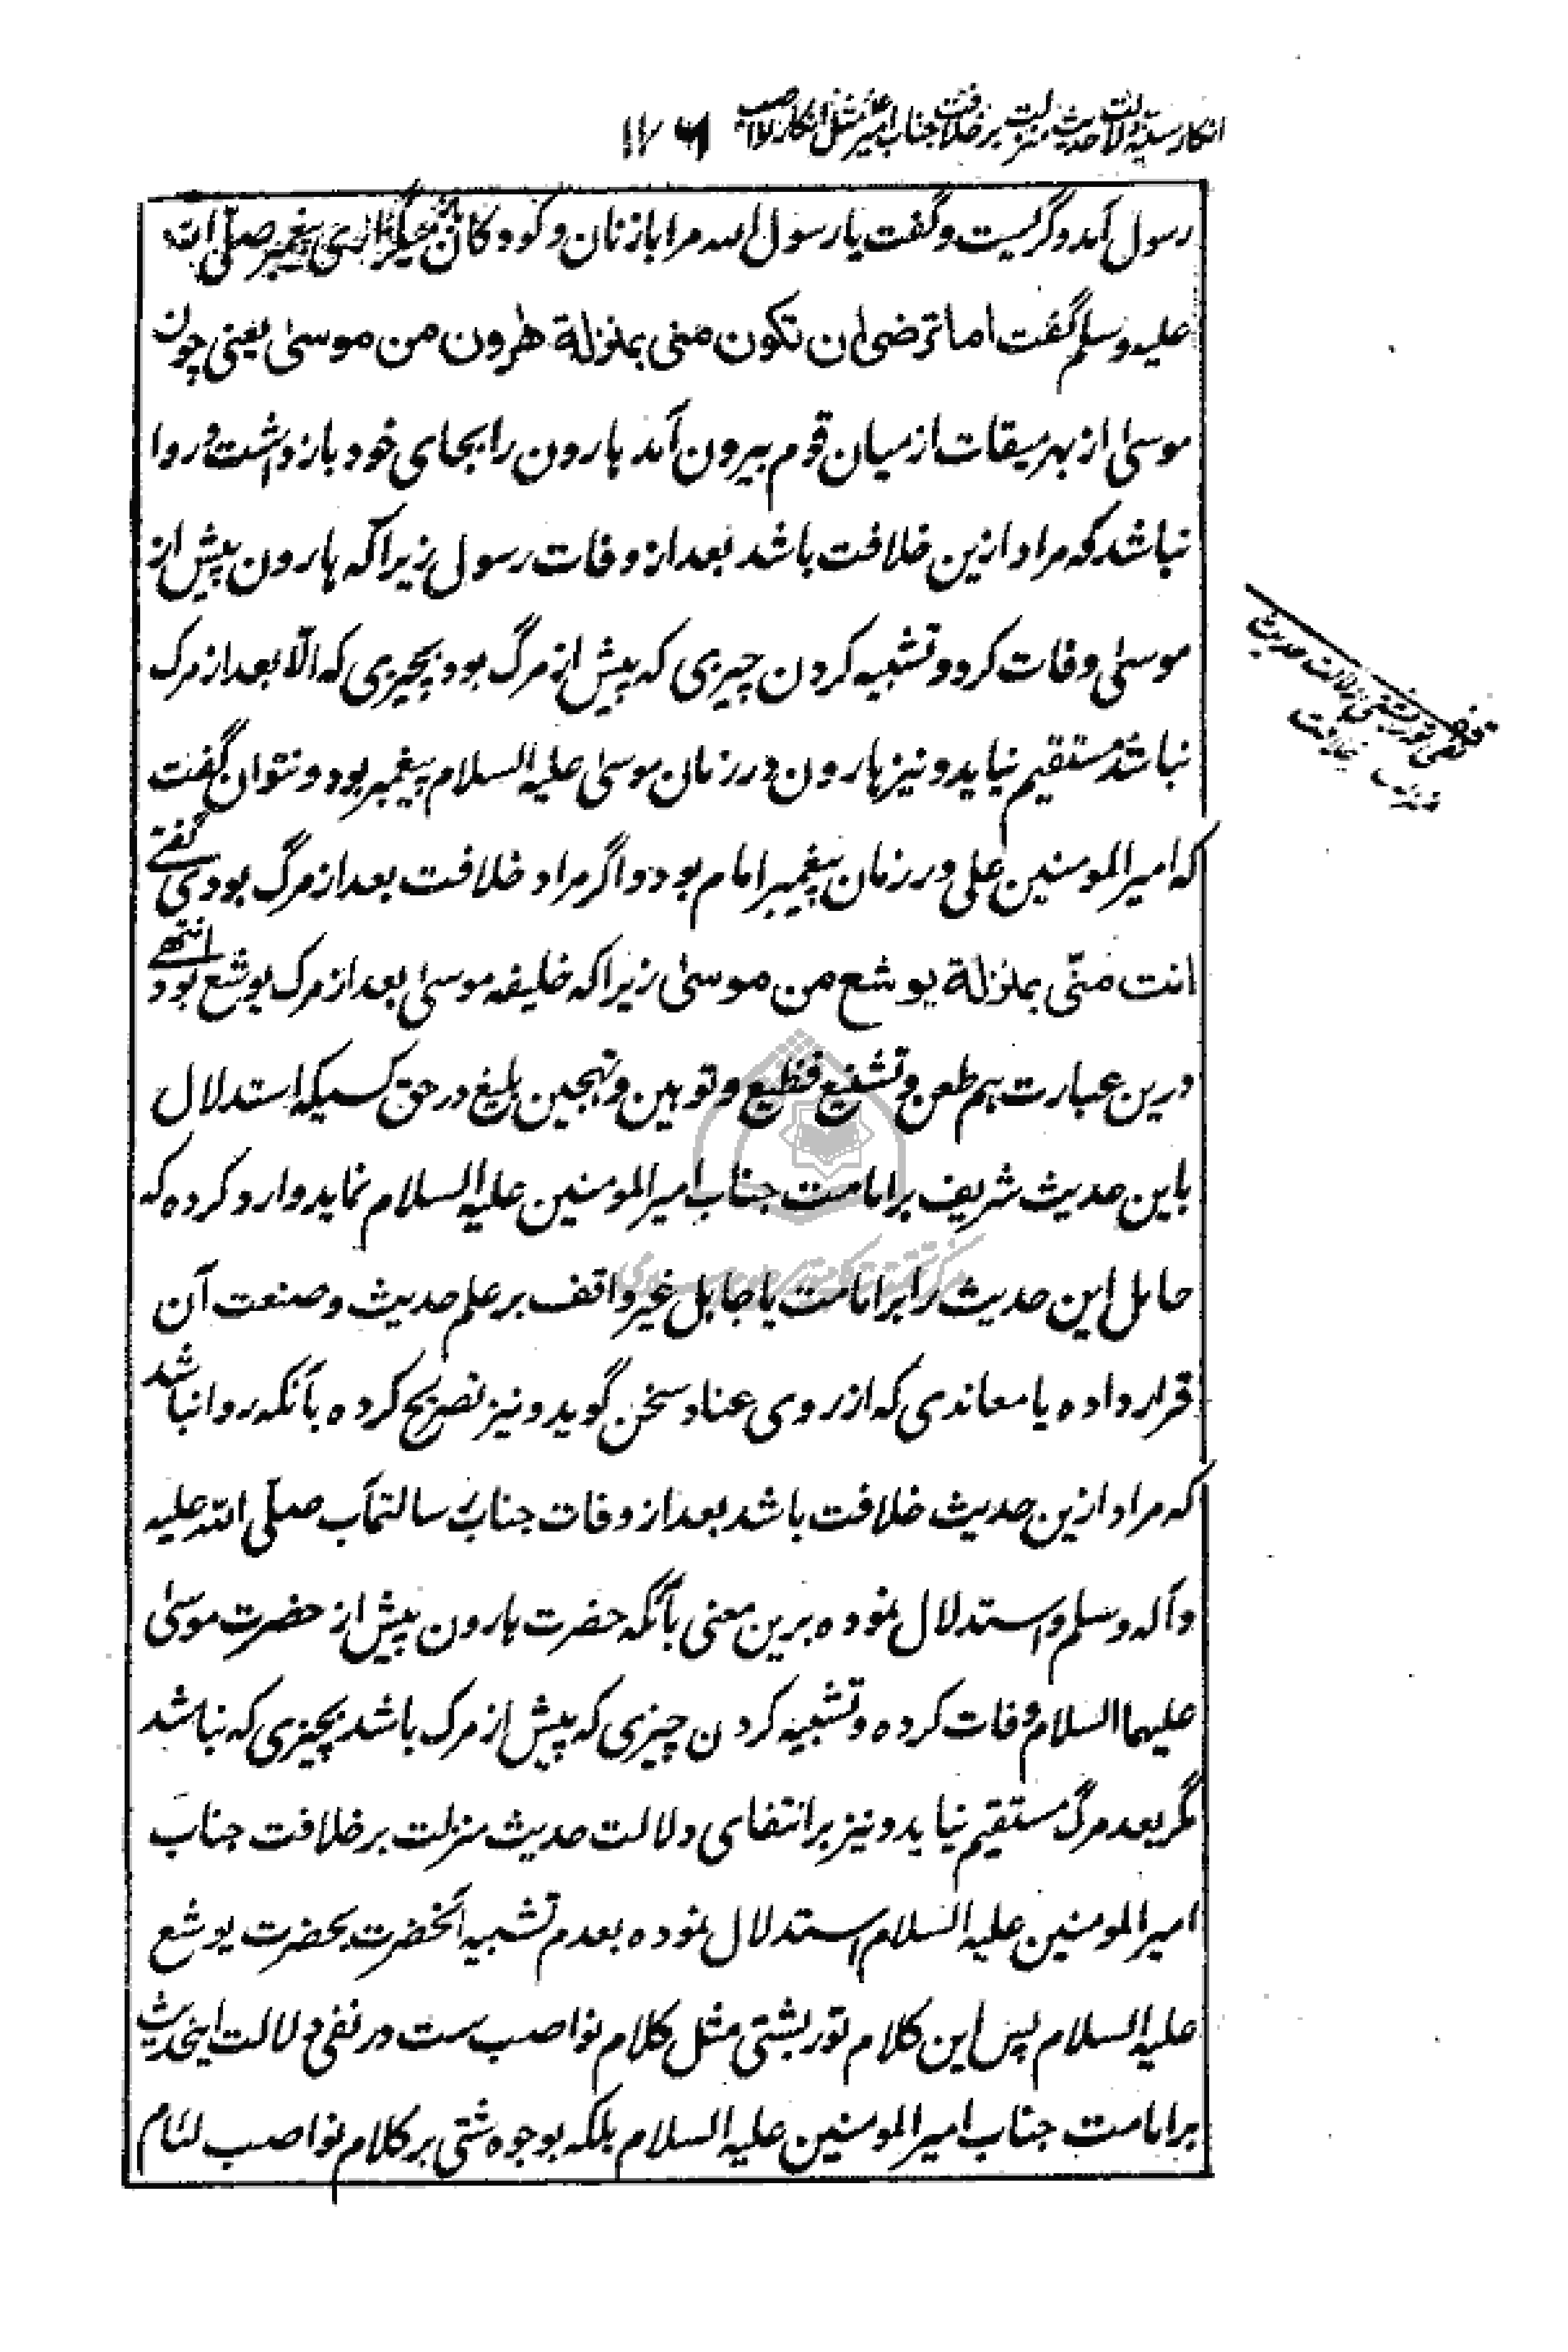 انکار سنیه دلالت حدیث منزلت بر خلافت جناب امیر مثل انکار نواصب ۱۱۷۶
رسول آمد و گریست و گفت یا رسول الله مرا با زنان و کودکان میگذاری پیغمبر صلّی الله
علیه وسلم گفت اما ترضی ان تکون منی بمنزلة هرون من موسی یعنی چون
موسی از بهر میقات از میان قوم بیرون آمد هارون را بجای خود باز داشت و روا
نباشد که مراد ازین خلافت باشد بعد از وفات رسول زیرا که هارون پیش از
موسی وفات کرد و تشبیه کردن چیزی که پیش از مرگ بود بچیزی که الّا بعد از مرگ
نباشد مستقیم نیاید و نیز هارون در زمان موسی علیه السلام پیغمبر بود و نتوان گفت
که امیر المومنین علی در زمان پیغمبر امام بود و اگر مراد خلافت بعد از مرگ بودی گفتے
انت منّی بمنزلة یوشع من موسی زیرا که خلیفه موسی بعد از مرگ یوشع بود انتهے
درین عبارت هم طعن و تشنیع فظیع و توهین و تهجین بلیغ در حق کسیکه استدلال
باین حدیث شریف بر امامت جناب امیر المومنین علیه السلام نماید وارد کرده که
حامل این حدیث را بر امامت یا جاهل غیر واقف بر علم حدیث و صنعت آن
قرار داده یا معاندی که از روی عناد سخن گوید و نیز تصریح کرده بآنکه روا نباشد
که مراد ازین حدیث خلافت باشد بعد از وفات جناب رسالتمآب صلّی الله علیه
وآله وسلم و استدلال نموده برین معنی بآنکه حضرت هارون پیش از حضرت موسی
علیهما السلام وفات کرده و تشبیه کردن چیزی که پیش از مرگ باشد بچیزی که نباشد
مگر بعد مرگ مستقیم نیاید و نیز بر انتفای دلالت حدیث منزلت بر خلافت جناب
امیر المومنین علیه السلام استدلال نموده بعدم تشبیه آنحضرت بحضرت یوشع
علیه السلام پس این کلام توربشتی مثل کلام نواصب ست در نفی دلالت اینحدیث
بر امامت جناب امیر المومنین علیه السلام بلکه بوجوه شتی بر کلام نواصب لئام
توربشتی دلالت حدیث
خلافت